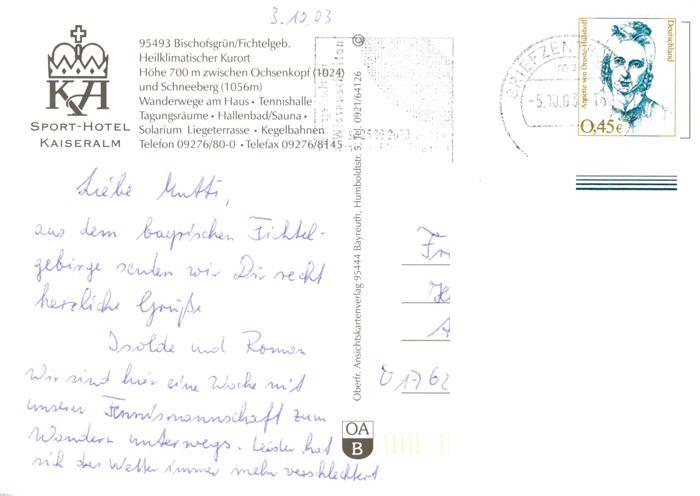 3.10.03
KA
SPORT-HOTEL
KAISERALM
95493 Bischofsgrün/Fichtelgeb.
Heilklimatischer Kurort
Höhe 700 m zwischen Ochsenkopf (1024)
und Schneeberg (1056m)
Wanderwege am Haus • Tennishalle
Tagungsräume • Hallenbad/Sauna •
Solarium Liegeterrasse • Kegelbahnen
Telefon 09276/80-0 • Telefax 09276/8145
Liebe Mutti,
aus dem bayrischen Fichtel-
gebirge senden wir Dir recht
herzliche Grüße
Isolde und Roman
Wir sind hier eine Woche mit
unserer Tennismannschaft zum
Wandern unterwegs. Leider hat
sich das Wetter immer mehr verschlechtert.
Oberfr. Ansichtskartenverlag 95444 Bayreuth, Humboldtstr. 5, Tel. 0921/64126
OA
B
BRIEFZEN
-5.10.03
Annette von Droste-Hülshoff
Deutschland
0,45€
Fr
A